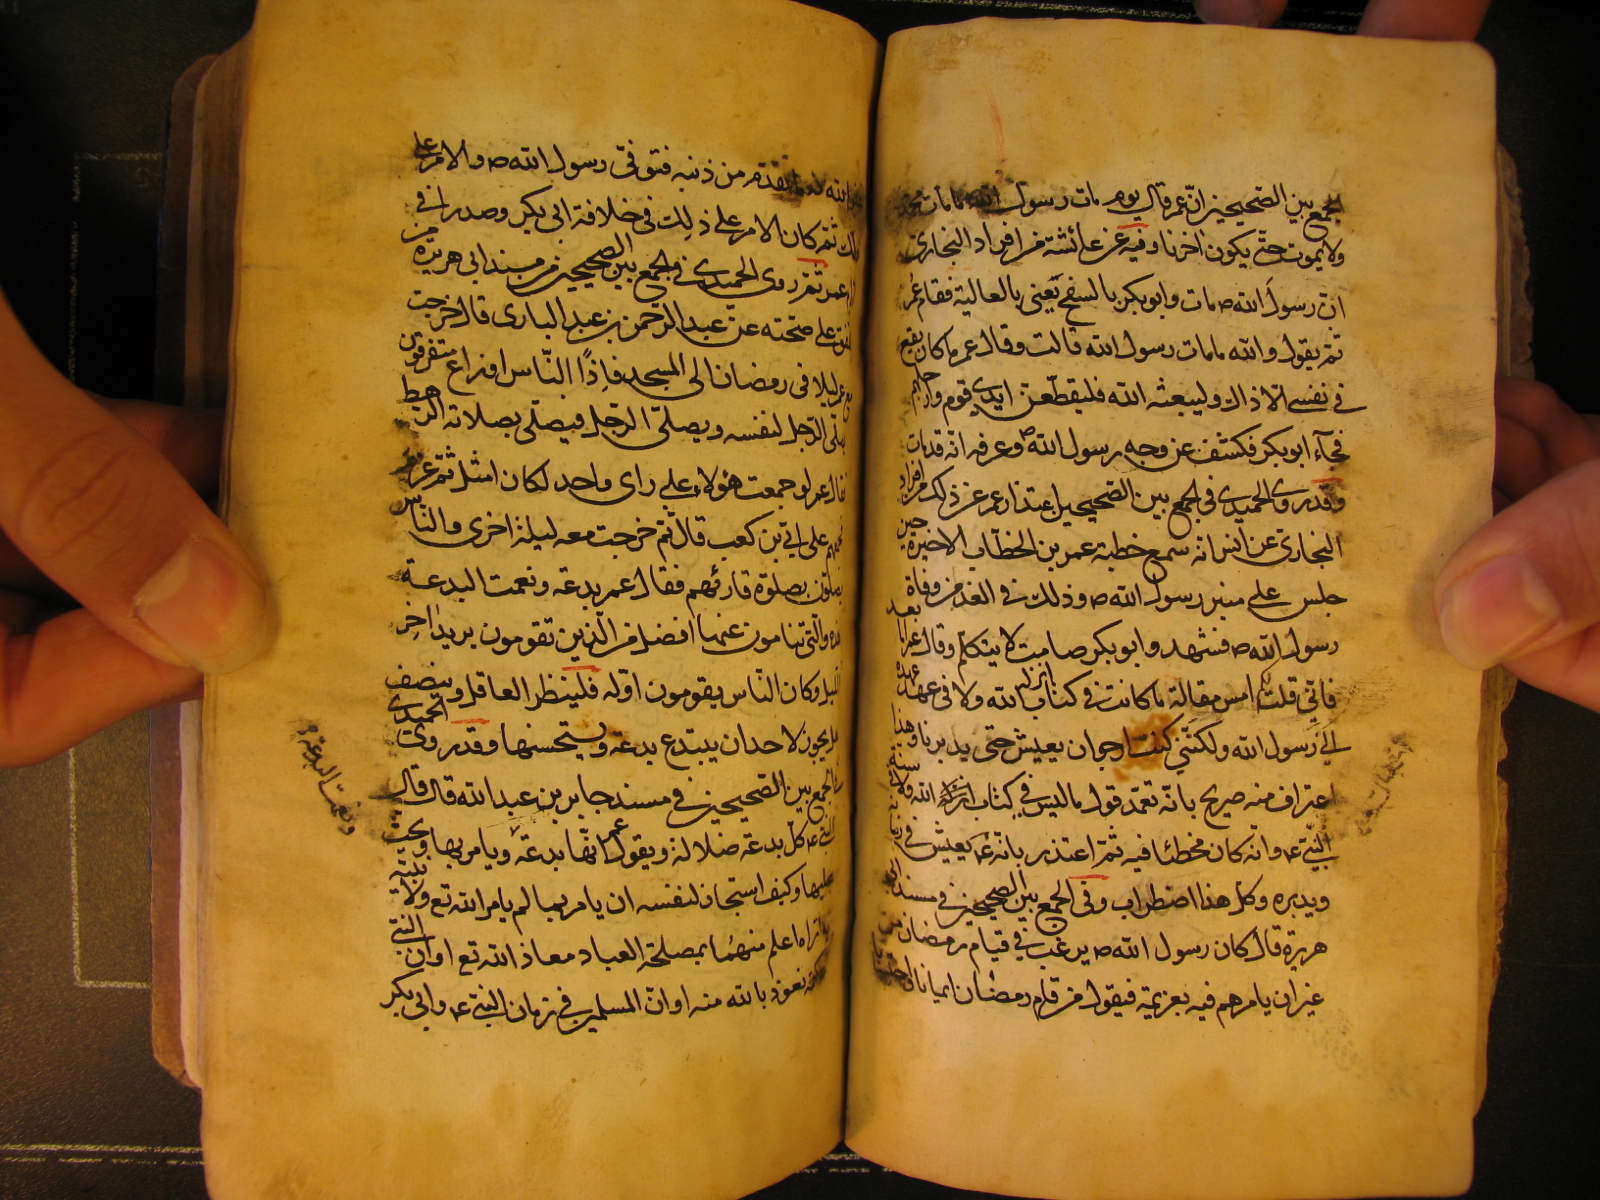 الجمع بين الصحيحين ان عمر قال يوم مات رسول الله ص ما مات محمد
ولا يموت حتى يكون اخرنا وفيه عن عائشة من افراد البخاري
ان رسول الله ص مات وابو بكر بالسفح يعني بالعالية فقام عمر
ثم يقول والله ما مات رسول الله قالت وقال عمر ما كان يقع
في نفسي الا ذاك وليبعثه الله فليقطعن ايدي قوم وارجلهم
فجاء ابو بكر فكشف عن وجه رسول الله ص وعرفه انه قد مات
وقد روى الحميدي في الجمع بين الصحيحين اعتذار عمر عن ذلك من افراد
البخاري عن انس انه سمع خطبة عمر بن الخطاب الاخيرة حين
جلس على منبر رسول الله ص وذلك في الغد من وفاة
رسول الله ص فتشهد وابو بكر صامت لا يتكلم وقال عمر اما بعد
فاني قلت امس مقالة ما كانت في كتاب انزله الله ولا في عهد عهده
الي رسول الله ولكنني كنت ارجو ان يعيش حتى يدبرنا وهذا
اعتراف منه صريح بانه تعمد قول ما ليس في كتاب الله ولا سنة
النبي ع وانه كان مخطئا فيه ثم اعتذر بانه ع يعيش في زمانه
ويدبره وكل هذا اضطراب وفي الجمع بين الصحيحين في مسند ابي
هريرة قال كان رسول الله ص يرغب في قيام رمضان من
غير ان يامرهم فيه بعزيمة فيقول من قام رمضان ايمانا
الله له ما تقدم من ذنبه فتوفي رسول الله ص والامر على
ذلك ثم كان الامر على ذلك في خلافة ابي بكر وصدرا في
عمر ثم روى الحميدي في الجمع بين الصحيحين من مسند ابي هريرة من
المتفق على صحته عن عبد الرحمن بن عبد الباري قال خرجت
مع عمر ليلا في رمضان الى المسجد فاذا الناس اوزاع متفرقون
يصلي الرجل لنفسه ويصلي الرجل فيصلي بصلاته الرهط
فقال عمر لو جمعت هؤلاء على راي واحد لكان امثل ثم عزم
فجمعهم على ابي بن كعب قال ثم خرجت معه ليلة اخرى والناس
يصلون بصلوة قارئهم فقال عمر بدعة ونعمت البدعة
هذه والتي تنامون عنها افضل من الذين تقومون يريد اخر
الليل وكان الناس يقومون اوله فلينظر العاقل وينصف
هل يجوز لاحد ان يبتدع بدعة ويستحسنها وقد روى الحميدي
في الجمع بين الصحيحين في مسند جابر بن عبد الله قال قال
النبي ع كل بدعة ضلالة ويقول عمر انها بدعة ويامر بها ويحث
عليها وكيف استجاز لنفسه ان يامر بما لم يامر الله تع ولا نبيه
اتراه اعلم منهما بمصلحة العباد معاذ الله تع او ان النبي
نعوذ بالله منه او ان المسلمين في زمان النبي ع وابي بكر
ونعمت البدعة